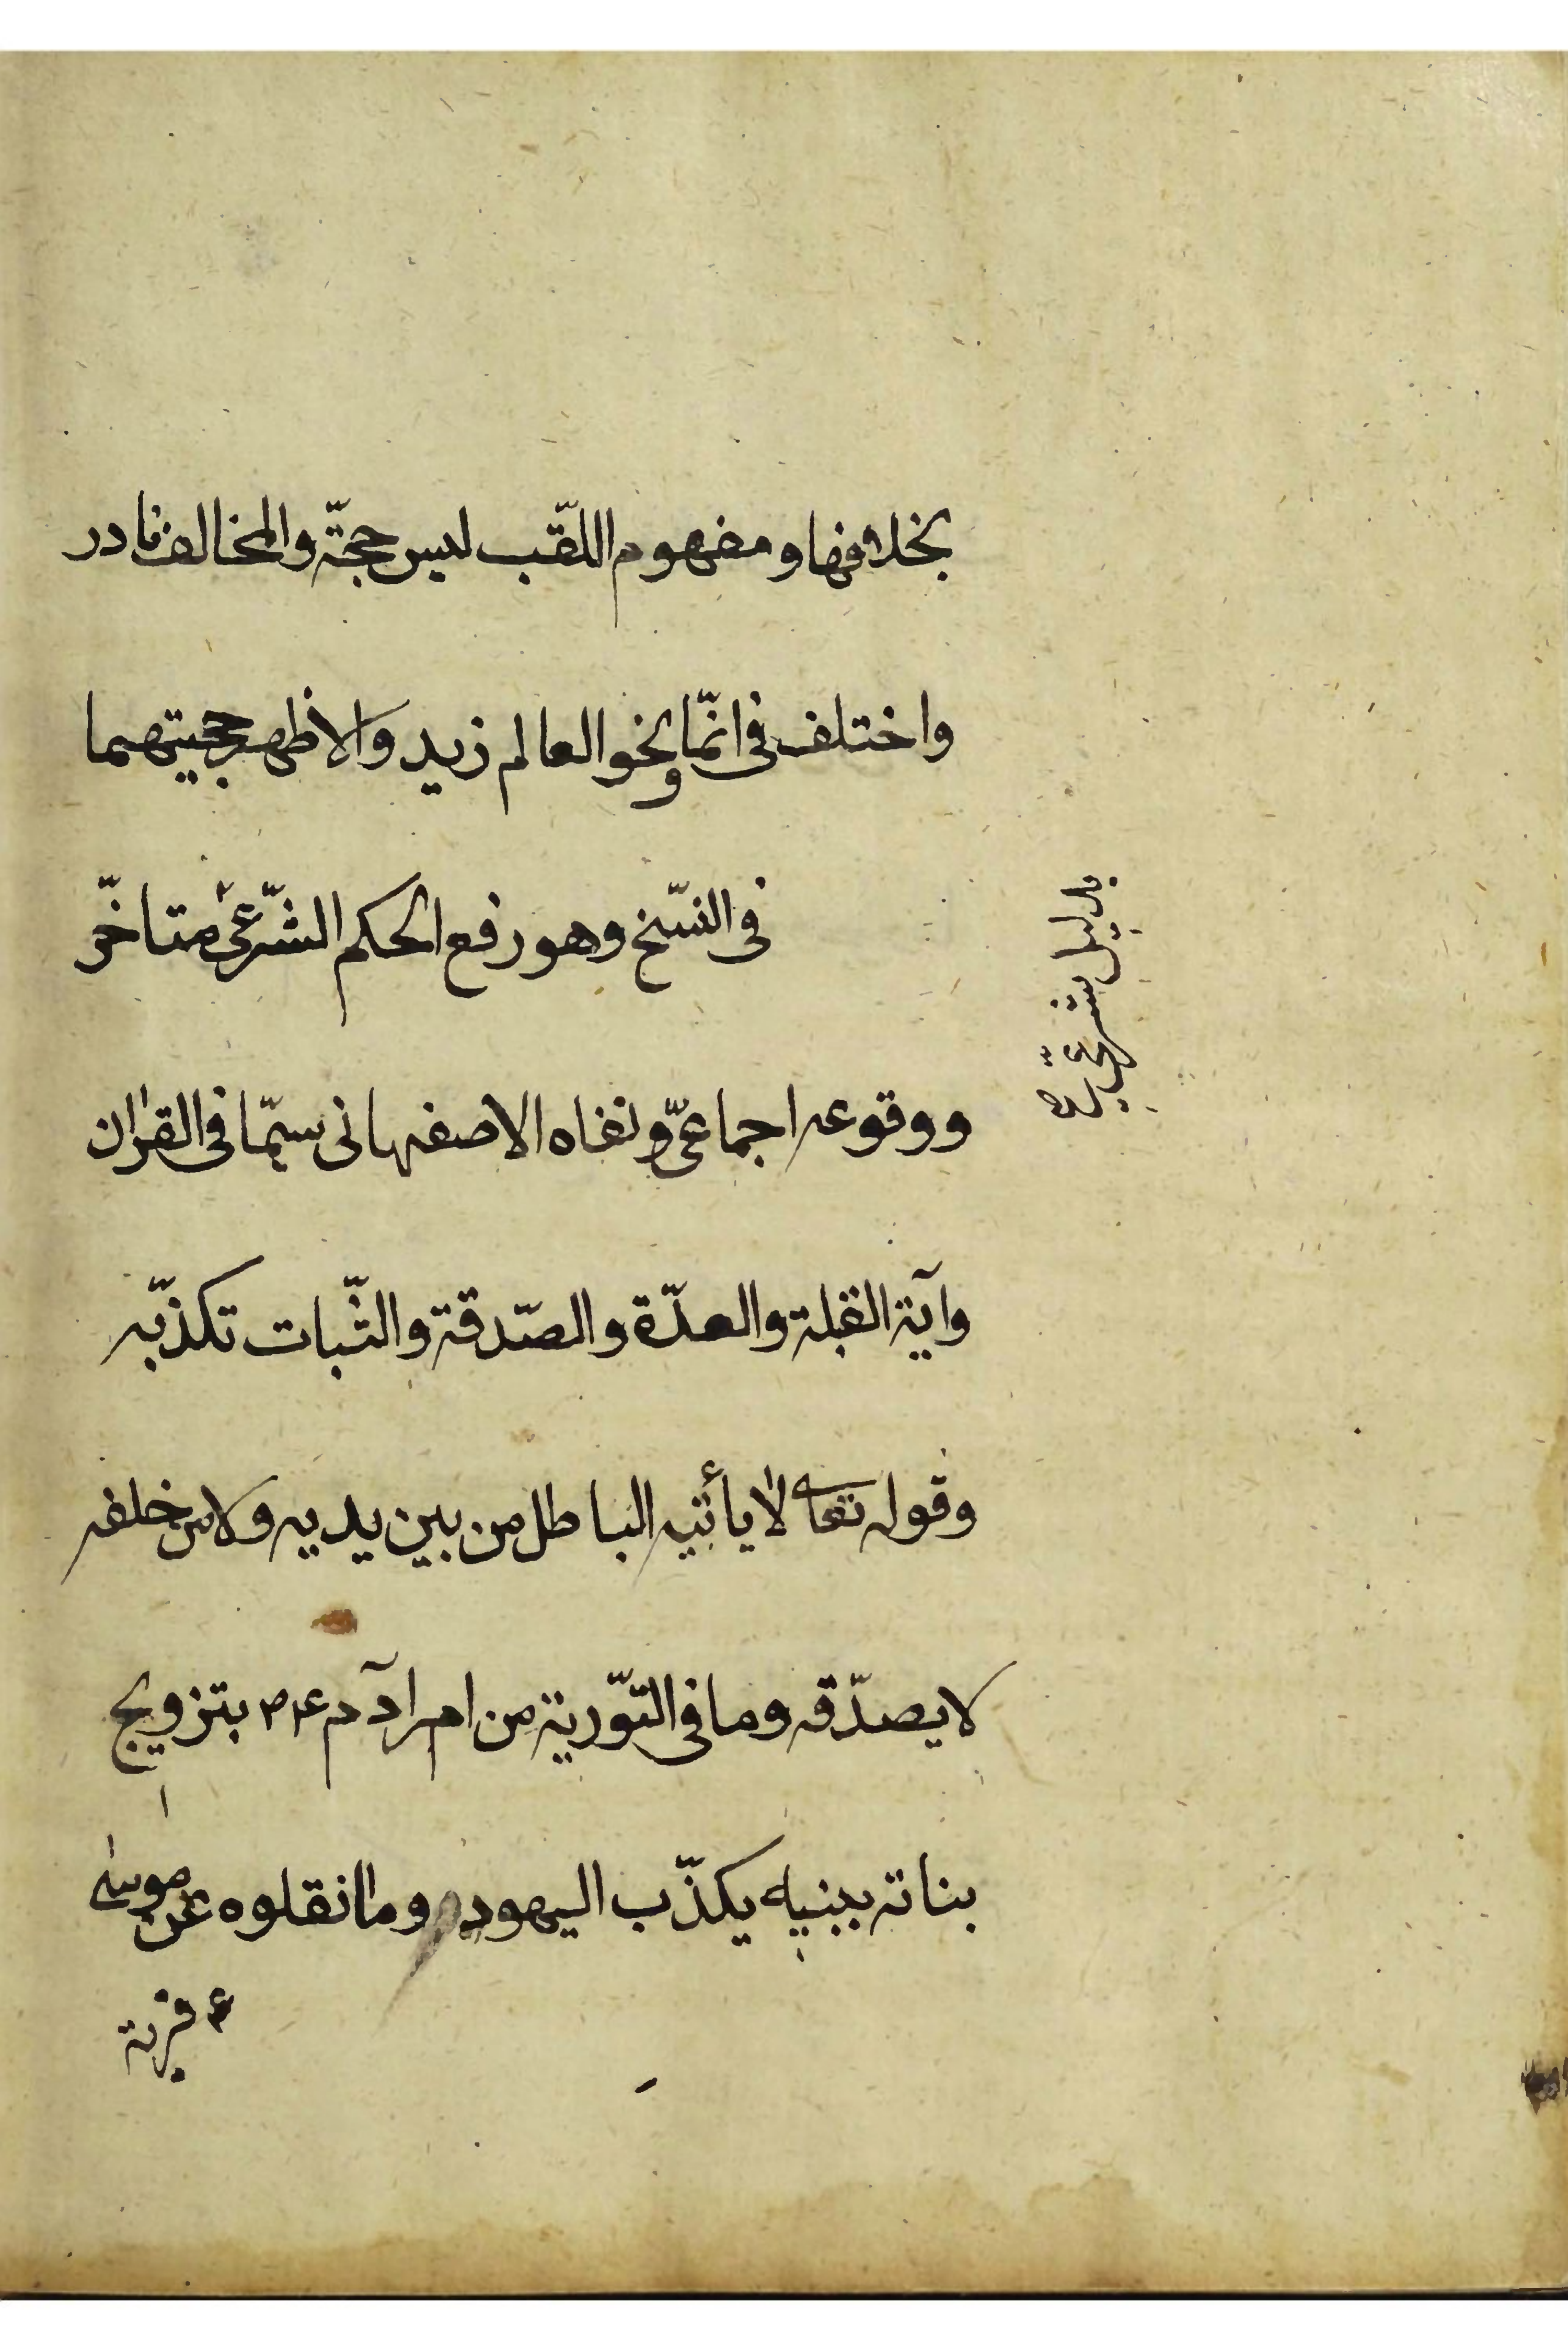 بخلافها ومفهوم اللّقب ليس حجّة والمخالف نادر
واختلف فى انّما ونحو العالم زيد والاظهر حجيتهما
فى النسّخ وهو رفع الحكم الشّرعىّ متاخّر
بدليل شرعىّ
ووقوعه اجماعىّ ونفاه الاصفهانى سيّما فى القرٰان
وآية القبلة والعدّة والصّدقة والثّبات تكذّبه
وقوله تعالى لا يأتيه الباطل من بين يديه ولا من خلفه
لا يصدّقه وما فى التّورية من امر آدم ع م بتزويج
بناته ببنيه يكذّب اليهود وما نقلوه عن موسىٰ
ع فرية